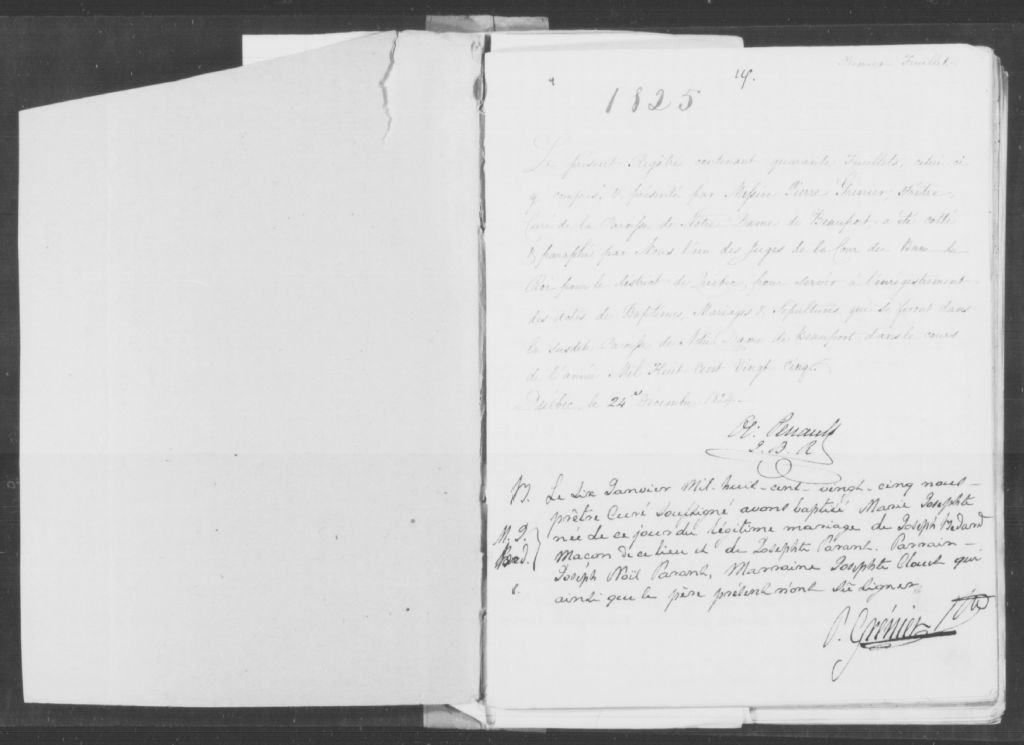 Premier Feuillet
1825
Le présent Régître contenant quarante feuillets, celui ci
y compris, & présenté par Messire Pierre Grenier, Prêtre,
Curé de la Paroisse de Notre Dame de Beauport, a été cotté
& paraphé par Nous l'un des Juges de la Cour du Banc du
Roi pour le district de Québec, pour servir à l'enrégistrement
des Actes de Baptêmes, Mariages & Sépultures, qui se feront dans
la susdite Paroisse de Notre Dame de Beauport dans le cours
de l'année Mil Huit Cent Vingt Cinq.
Québec le 24 Décembre 1824
Ol: Perrault
J. B. R
Le Six Janvier Mil-huit-cent-vingt-cinq nous
prêtre Curé Soussigné avons baptisé Marie Josephte
née de ce jour du légitime mariage de Joseph Bedard
M. J. Maçon de ce lieu et de Josephte Parant. Parrain
Bed. Joseph Noël Parant, Marraine Josephte Clout qui
ainsi que le père présent n'ont su signer
P. Grénier Ptre